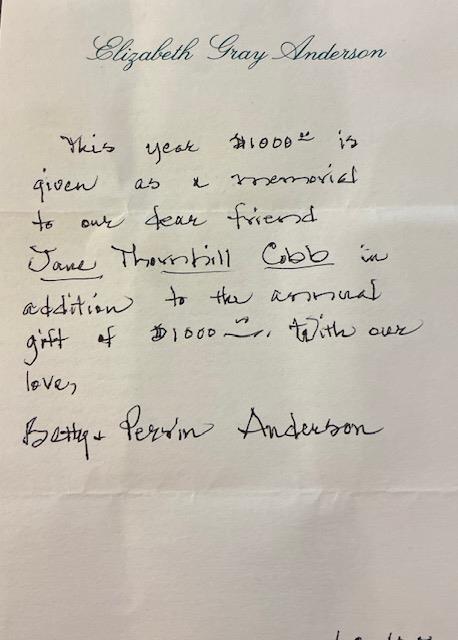 Elizabeth Gray Anderson
This year $1000.00 is
given as a memorial
to our dear friend
Jane Thornhill Cobb in
addition to the annual
gift of $1000. With our
love,
Betty + Perrin Anderson